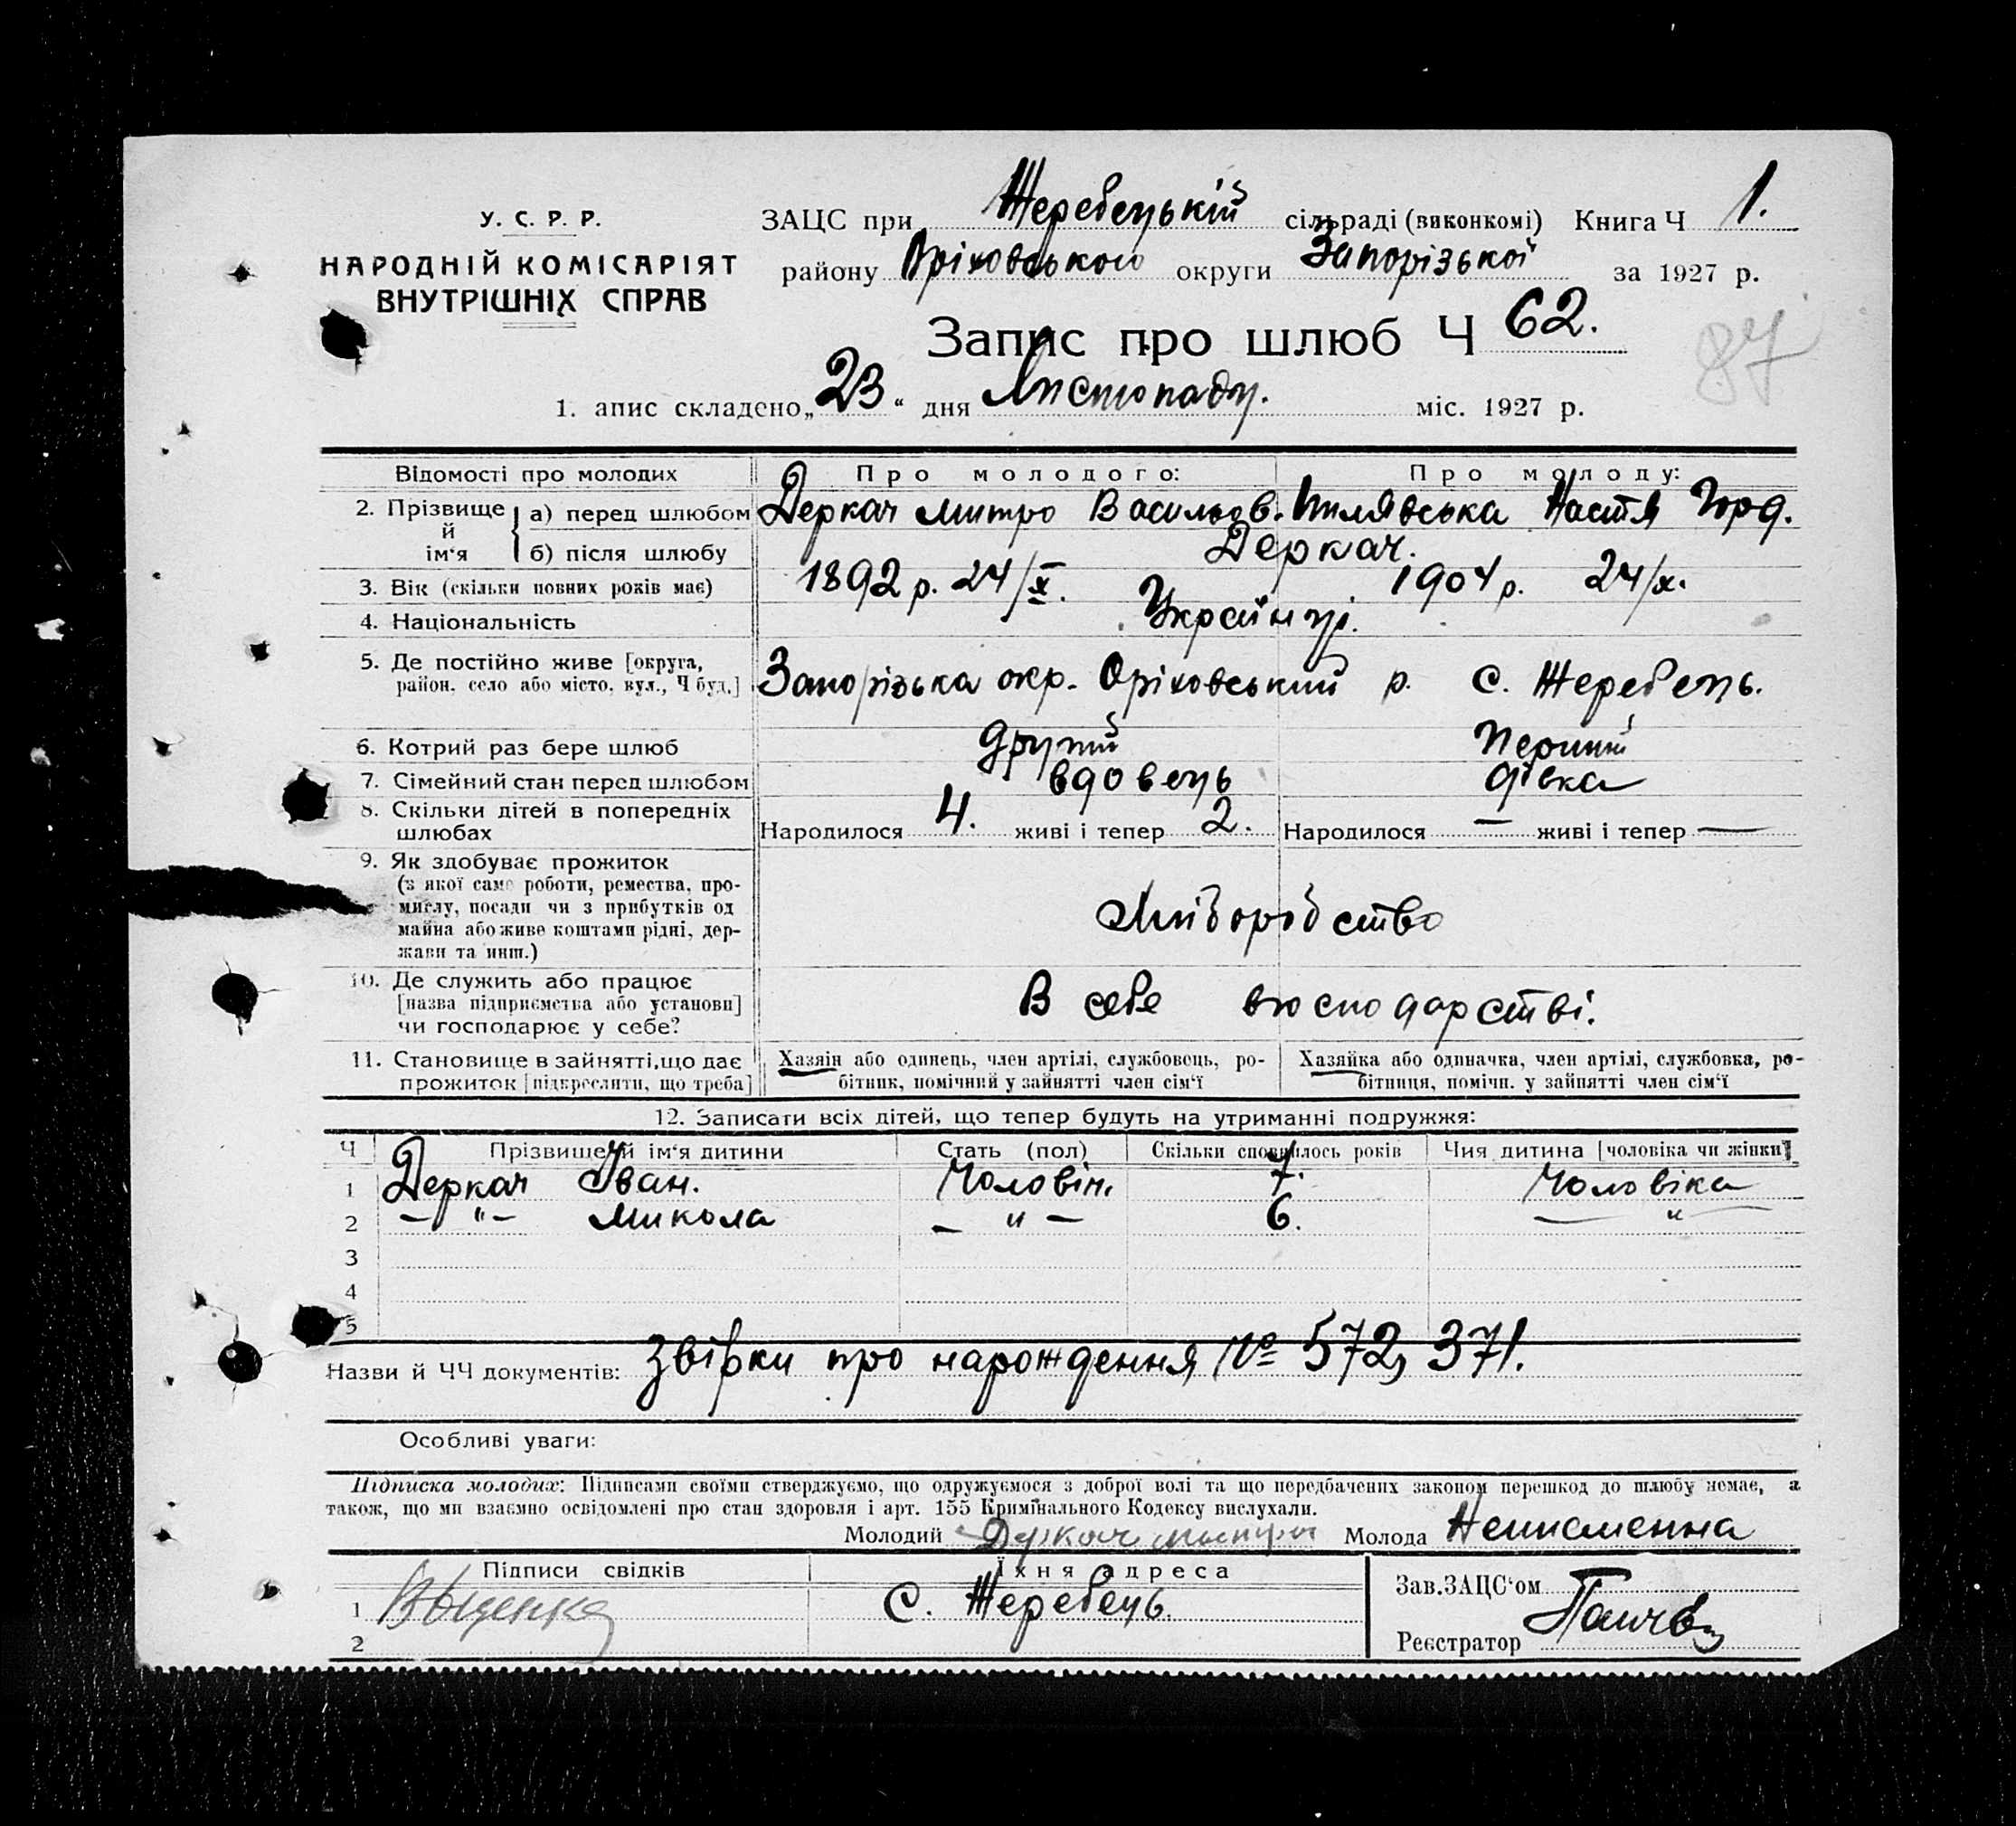 У. С. Р. Р.
НАРОДНІЙ КОМІСАРІЯТ
ВНУТРІШНІХ СПРАВ
ЗАЦС при Жеребецькій сільраді (виконкомі) Книга Ч 1.
району Оріховського округи Запорізької за 1927 р.
Запис про шлюб Ч 62.
87
1. апис складено „23“ дня Листопаду. міс. 1927 р.
Відомості про молодих
Про молодого:
Про молоду:
2. Прізвище й ім‘я
а) перед шлюбом
Деркач Митро Васильов.
Пилявська Настя Горд.
б) після шлюбу
Деркач.
3. Вік (скільки повних років має)
1892 р. 24/X.
1904 р. 24/X.
4. Національність
Українці.
5. Де постійно живе [округа,
район, село або місто, вул., Ч буд.]
Запорізька окр. Оріховський р. с. Жеребець.
6. Котрий раз бере шлюб
другий
Перший
7. Сімейний стан перед шлюбом
вдовець
дівка
8. Скільки дітей в попередніх
шлюбах
Народилося 4. живі і тепер 2.
Народилося — живі і тепер —
9. Як здобуває прожиток
(з якої саме роботи, ремества, про-
мислу, посади чи з прибутків од
майна або живе коштами рідні, дер-
жави та инш.)
Хліборобство
10. Де служить або працює
[назва підприємства або установи]
чи господарює у себе?
В себе
в господарстві.
11. Становище в зайнятті, що дає
прожиток [підкреслити, що треба]
Хазяін або одинець, член артілі, службовець, ро-
бітник, помічний у зайнятті член сім‘ї
Хазяйка або одиначка, член артілі, службовка, ро-
бітниця, помічн. у зайнятті член сім‘ї
12. Записати всіх дітей, що тепер будуть на утриманні подружжя:
Ч Прізвище й ім‘я дитини Стать (пол) Скільки сповнилось років Чия дитина [чоловіка чи жінки]
1 Деркач Іван. Чоловіч. 7. Чоловіка
2 — „ — Микола — „ — 6. — „ —
3
4
5
Назви й ЧЧ документів: Звірки про нарождення № 572, 371.
Особливі уваги:
Підписка молодих: Підписами своїми стверджуємо, що одружуємося з доброї волі та що передбачених законом перешкод до шлюбу немає, а
також, що ми взаємно освідомлені про стан здоровля і арт. 155 Кримінального Кодексу вислухали.
Молодий Деркач Митро Молода Неписменна
Підписи свідків
Їхня адреса
1
С. Жеребець.
2
Зав.ЗАЦС‘ом
Реєстратор